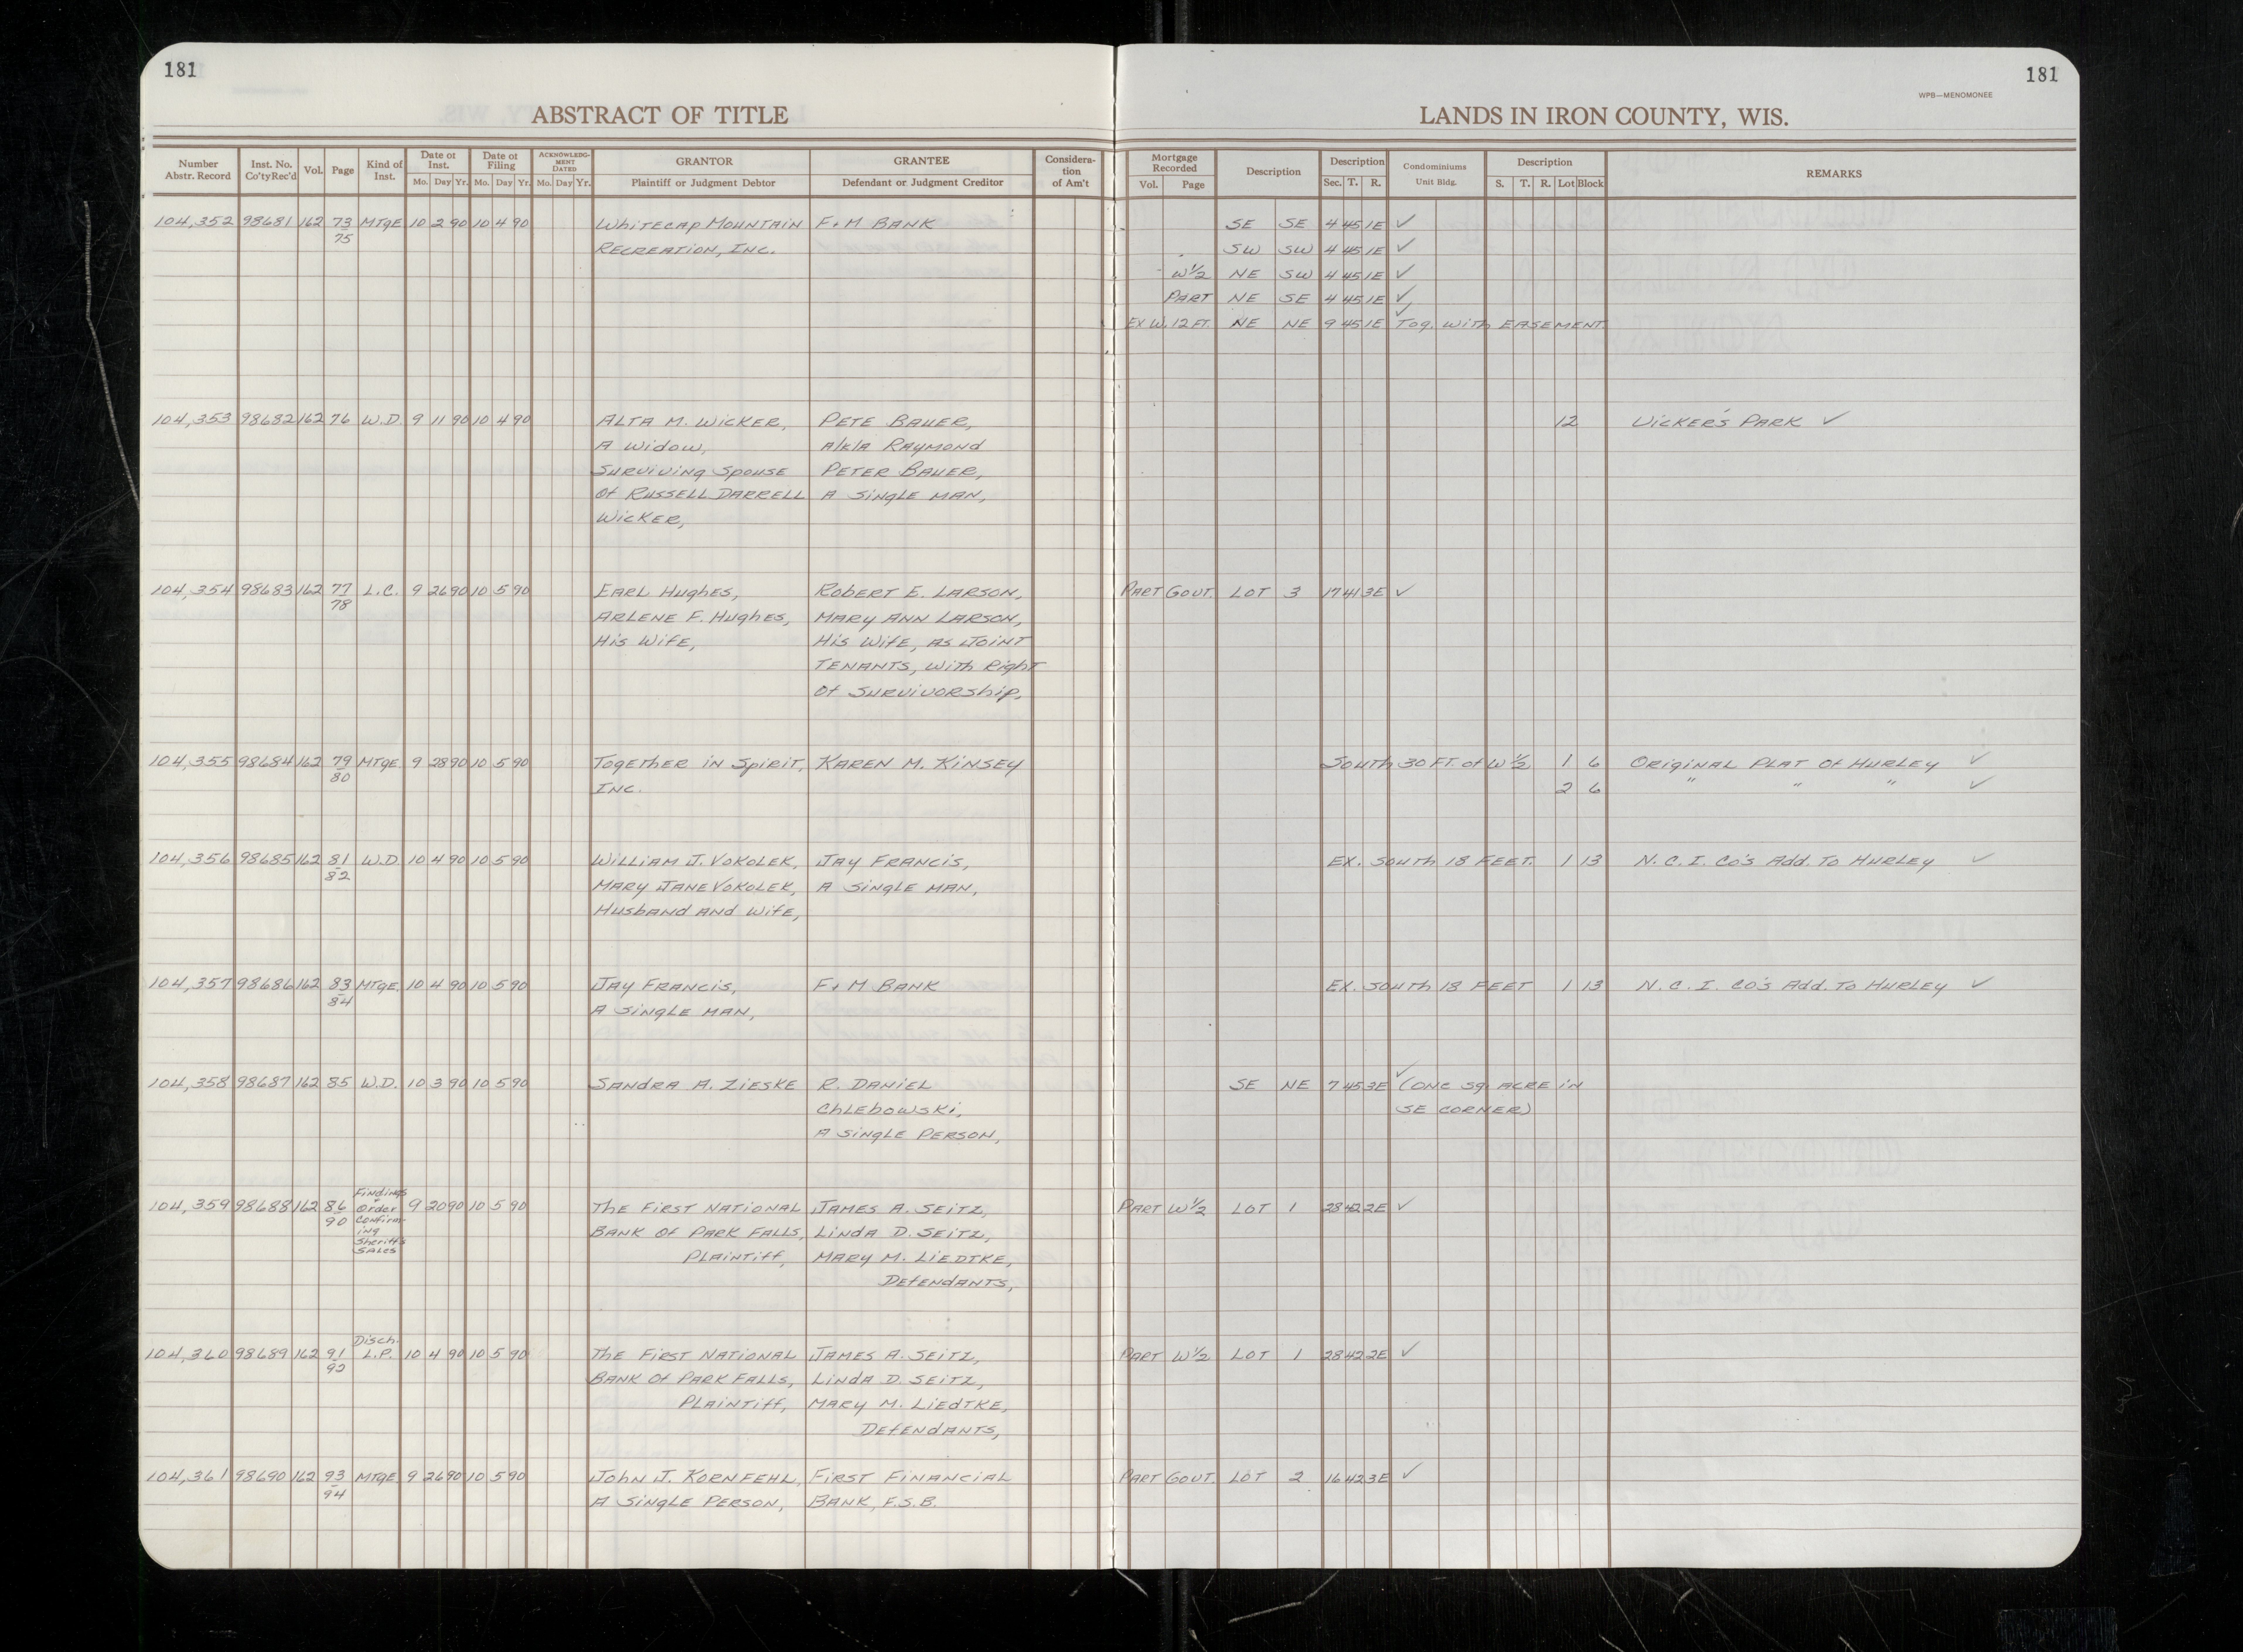 181
181
WPB—MENOMONEE
ABSTRACT OF TITLE
LANDS IN IRON COUNTY, WIS.
Number Abstr. Record
Inst. No. Co'ty Rec'd
Vol.
Page
Kind of Inst.
Date of Inst. Mo. Day Yr.
Date of Filing Mo. Day Yr.
ACKNOWLEDGMENT DATED Mo. Day Yr.
GRANTOR Plaintiff or Judgment Debtor
GRANTEE Defendant or Judgment Creditor
Considera-tion of Am't
Mortgage Recorded Vol. Page
Description
Description Sec. T. R.
Condominiums Unit Bldg.
Description S. T. R. Lot Block
REMARKS
104,352 98681 162 73/75 MTGE 10 2 90 10 4 90 WHITECAP MOUNTAIN F+M BANK SE SE 4 45 1E ✓
RECREATION, INC. SW SW 4 45 1E ✓
W 1/2 NE SW 4 45 1E ✓
PART NE SE 4 45 1E ✓
EX W. 12 FT. NE NE 9 45 1E ✓ TOG. WITH EASEMENT
104,353 98682 162 76 W.D. 9 11 90 10 4 90 ALTA M. WICKER, PETE BAUER, 12 VICKER'S PARK ✓
A WIDOW, A/K/A RAYMOND
SURVIVING SPOUSE PETER BAUER,
OF RUSSELL DARRELL A SINGLE MAN,
WICKER,
104,354 98683 162 77/78 L.C. 9 26 90 10 5 90 EARL HUGHES, ROBERT E. LARSON, PART GOVT. LOT 3 17 41 3E ✓
ARLENE F. HUGHES, MARY ANN LARSON,
HIS WIFE, HIS WIFE, AS JOINT
TENANTS, WITH RIGHT
OF SURVIVORSHIP,
104,355 98684 162 79/80 MTGE. 9 28 90 10 5 90 TOGETHER IN SPIRIT, KAREN M. KINSEY SOUTH 30 FT. OF W 1/2 1 6 ORIGINAL PLAT OF HURLEY ✓
INC. 2 6 " " " ✓
104,356 98685 162 81/82 W.D. 10 4 90 10 5 90 WILLIAM J. VOKOLEK, JAY FRANCIS, EX. SOUTH 18 FEET. 1 13 N.C.I. CO'S ADD. TO HURLEY ✓
MARY JANE VOKOLEK, A SINGLE MAN,
HUSBAND AND WIFE,
104,357 98686 162 83/84 MTGE. 10 4 90 10 5 90 JAY FRANCIS, F+M BANK EX. SOUTH 18 FEET 1 13 N.C.I. CO'S ADD. TO HURLEY ✓
A SINGLE MAN,
104,358 98687 162 85 W.D. 10 3 90 10 5 90 SANDRA A. ZIESKE R. DANIEL SE NE 7 45 3E ✓ (ONE SQ. ACRE IN
CHLEBOWSKI, SE CORNER)
A SINGLE PERSON,
104,359 98688 162 86/90 Findings + Order Confirm-ing Sheriff's Sales 9 20 90 10 5 90 THE FIRST NATIONAL JAMES A. SEITZ, PART W 1/2 LOT 1 28 42 2E ✓
BANK OF PARK FALLS, LINDA D. SEITZ,
PLAINTIFF, MARY M. LIEDTKE,
DEFENDANTS,
104,360 98689 162 91/92 Disch. L.P. 10 4 90 10 5 90 THE FIRST NATIONAL JAMES A. SEITZ, PART W 1/2 LOT 1 28 42 2E ✓
BANK OF PARK FALLS, LINDA D. SEITZ,
PLAINTIFF, MARY M. LIEDTKE,
DEFENDANTS,
104,361 98690 162 93/94 MTGE. 9 26 90 10 5 90 JOHN J. KORNFEHL, FIRST FINANCIAL PART GOVT. LOT 2 16 42 3E ✓
A SINGLE PERSON, BANK, F.S.B.